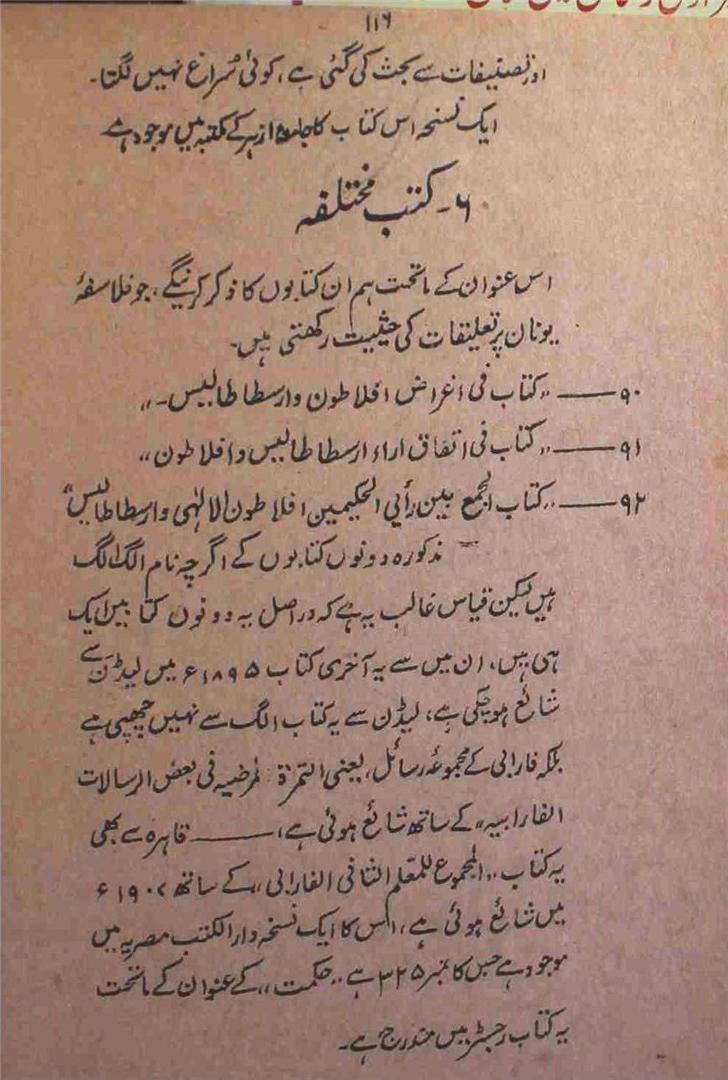 ۱۱۶
اور تصنیفات سے بحث کی گئی ہے، کوئی سُراغ نہیں لگتا۔
ایک نسخہ اس کتاب کا جامعہ ازہر کے مکتبہ میں موجود ہے۔
۶۔ کتب مختلفہ
اس عنوان کے ماتحت ہم ان کتابوں کا ذکر کرینگے، جو فلاسفۂ
یونان پر تعلیقات کی حیثیت رکھتی ہیں۔
۹۰ــــ ,,کتاب فی اغراض افلاطون وارسطاطالیس۔،،
۹۱ــــ ,,کتاب فی اتفاق اراء ارسطاطالیس وافلاطون،،
۹۲ــــ ,,کتاب الجمع بین رأیی الحکیمین افلاطون الالٰہی وارسطاطالیس،،
مذکورہ دونوں کتابوں کے اگرچہ نام الگ الگ
ہیں لیکن قیاس غالب یہ ہے کہ دراصل یہ دونوں کتابیں ایک
ہی ہیں، ان میں سے یہ آخری کتاب ۱۸۹۵ء میں لیڈن سے
شائع ہوچکی ہے، لیڈن سے یہ کتاب الگ سے نہیں چھپی ہے
بلکہ فارابی کے مجموعۂ رسائل، یعنی الثمرۃ المرضیہ فی بعض الرسالات
الفارابیہ،، کے ساتھ شائع ہوئی ہے، ــــ قاہرہ سے بھی
یہ کتاب ,,المجموع للمعلم الثانی الفارابی،، کے ساتھ ۱۹۰۷ء
میں شائع ہوئی ہے، اس کا ایک نسخہ دارالکتب مصریہ میں
موجود ہے جس کا نمبر ۳۲۵ ہے ,,حکمت،، کے عنوان کے ماتحت
یہ کتاب رجسٹر میں مندرج ہے۔